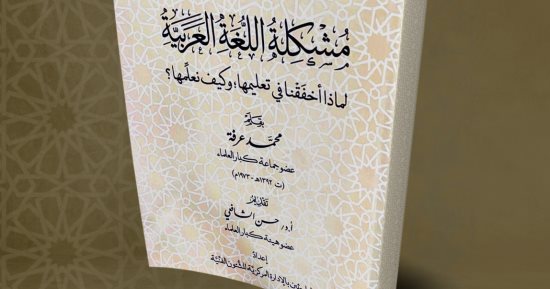 مُشْكِلَةُ اللُّغَةِ العَرَبِيَّةِ
لماذا أخفَقْنا في تعليمها؛ وكيف نعلِّمها؟
بقلم
محمّد عرفة
عضو جماعة كبار العلماء
(ت ١٣٩٢هـ - ١٩٧٣م)
تقديم
أ.د/ حسن الشافعي
عضو هيئة كبار العلماء
إعداد
بالإدارة المركزيَّة للشئون الفنيَّة